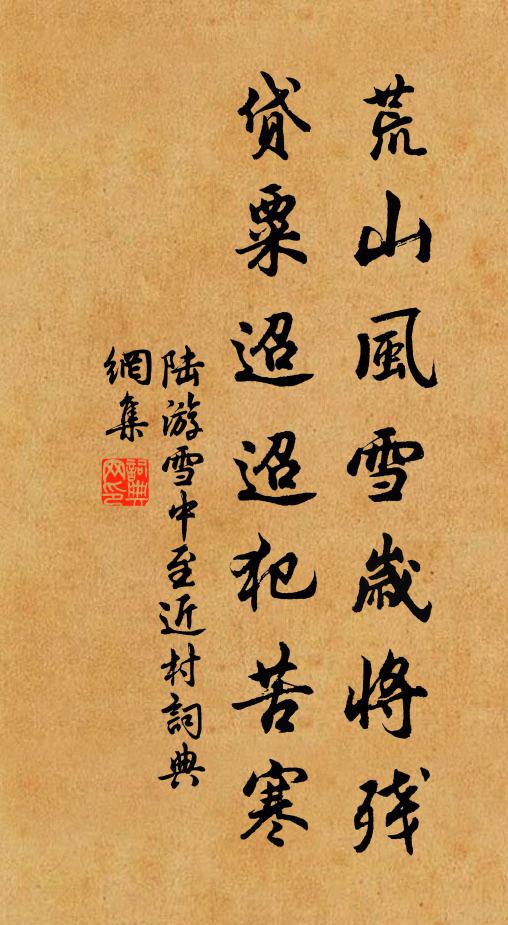 荒山風雪歲將残
貸粟迢迢犯苦寒
陆游雪中至近村詞典
網集
詞典网印